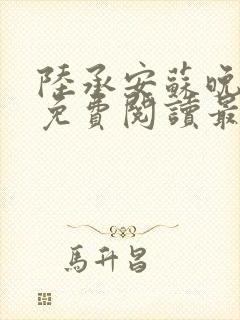 陸承安蘇晚
免費閱讀最
馬升昌